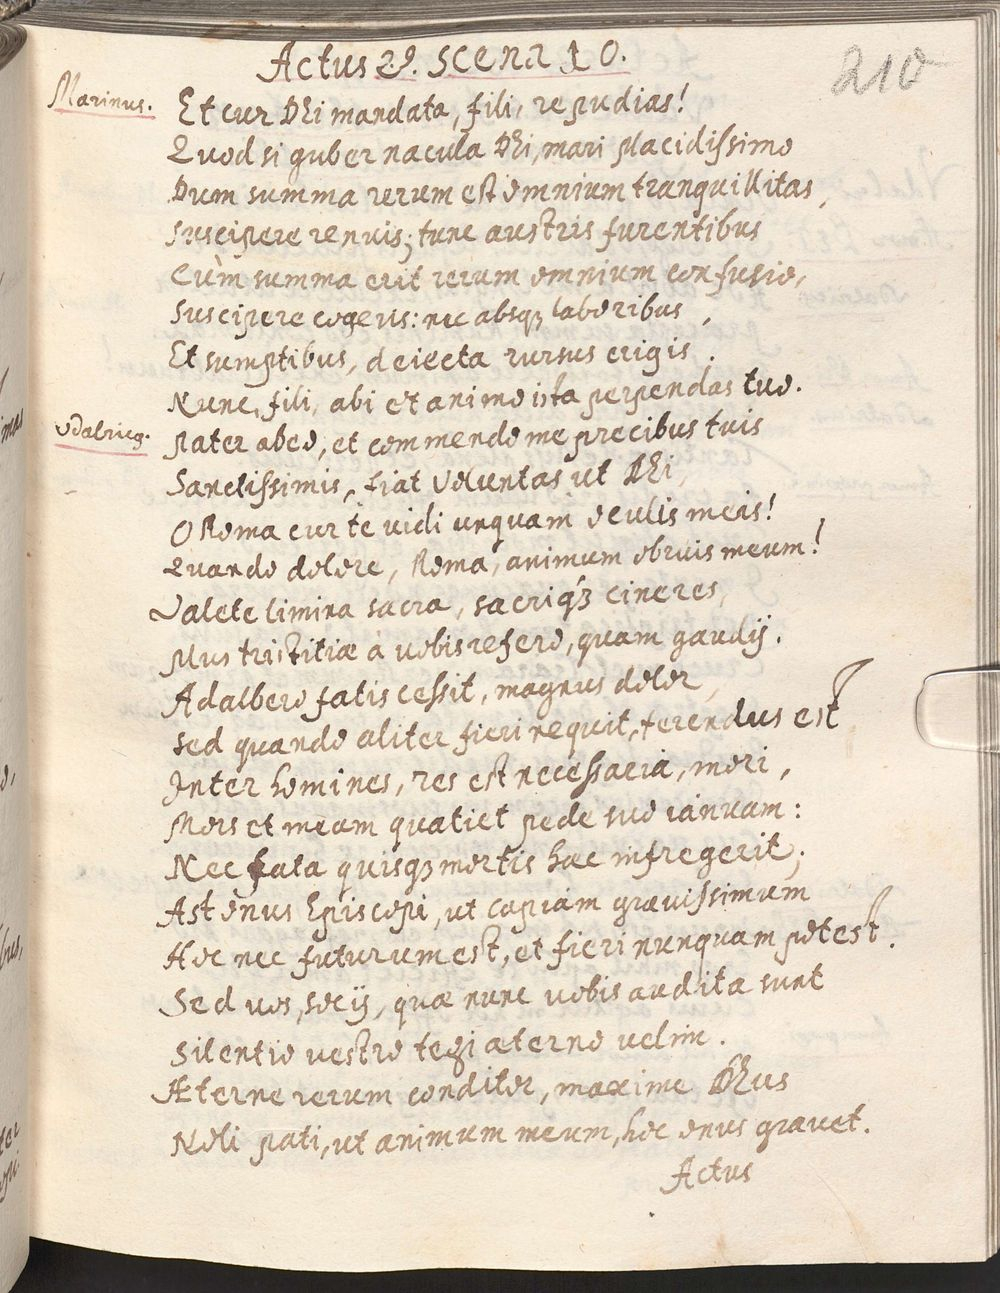 Actus 2⁹. Scena 10.
210
Marinus. Et cur Dei mandata, fili, repudias!
Quod si gubernacula Dei, mari placidissimo
Dum summa rerum est omnium tranquillitas,
Suscipere renuis; tunc austris furentibus
Cùm summa erit rerum omnium confusio,
Suscipere cogeris: nec absq; laboribus,
Et sumptibus, deiecta rursus erigis.
Nunc, fili, abi et animo ista perpendas tuo.
Vdalricq. Pater abeo, et commendo me precibus tuis
Sanctissimis, fiat voluntas ut Dei,
O Roma cur te vidi unquam oculis meis!
Quando dolore, Roma, animum obruis meum!
Valete limina sacra, sacriq; cineres,
Plus tristitiæ a vobis refero, quam gaudij.
Adalbero fatis cessit, magnus dolor,
Sed quando aliter fieri nequit, ferendus est
Inter homines, res est necessaria, mori,
Mors et meam quatiet pede suo ianuam:
Nec fata quisq; mortis hæc infregerit;
Ast onus Episcopi, ut capiam gravissimum
Hoc nec futurum est, et fieri nunquam potest.
Sed vos, socij, quæ nunc vobis audita sunt
Silentio vestro tegi æterno velim.
Æterne rerum conditor, maxime Deus
Noli pati, ut animum meum, hoc onus gravet.
Actus